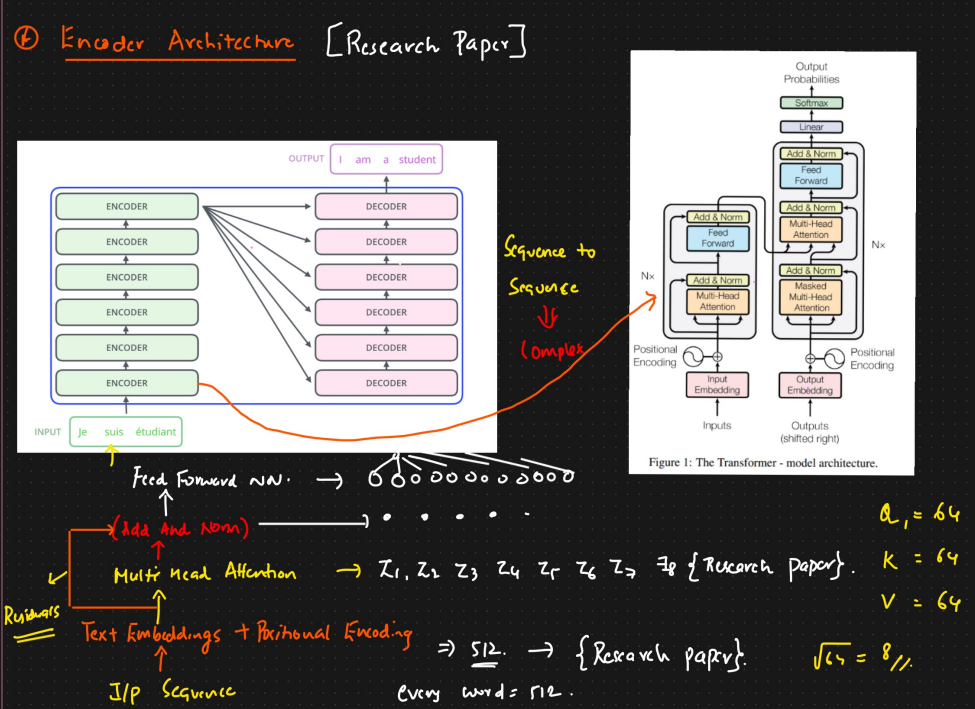 Encoder Architecture [Research Paper]
OUTPUT I am a student
ENCODER
ENCODER
ENCODER
ENCODER
ENCODER
ENCODER
DECODER
DECODER
DECODER
DECODER
DECODER
DECODER
INPUT Je suis étudiant
Sequence to
Sequence
Complex
Output
Probabilities
Softmax
Linear
Add & Norm
Feed
Forward
Add & Norm
Multi-Head
Attention
Add & Norm
Masked
Multi-Head
Attention
Nx
Add & Norm
Feed
Forward
Add & Norm
Multi-Head
Attention
Nx
Positional
Encoding
Positional
Encoding
Input
Embedding
Output
Embedding
Inputs
Outputs
(shifted right)
Figure 1: The Transformer - model architecture.
Feed Forward NN. →
(Add And Norm)
Multi Head Attention → Z1, Z2 Z3 Z4 Z5 Z6 Z7 Z8 {Research paper}.
Residuals
Text Embeddings + Positional Encoding ⇒ 512. → {Research paper}.
I/p Sequence
every word = 512.
Q, = 64
K = 64
V = 64
√64 = 8//.